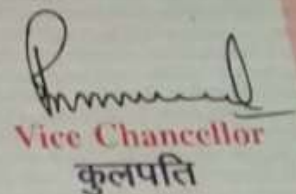 Vice Chancellor
कुलपति